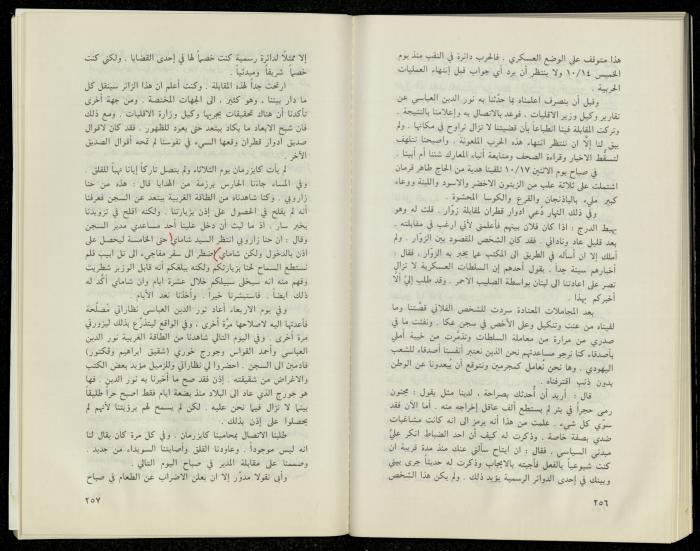 هذا متوقف على الوضع العسكري . فالحرب دائرة في النقب منذ يوم
الخميس ١٠/١٤ ولا ينتظر أن يرد أي جواب قبل إنتهاء العمليات
الحربية .
وقبل أن ينصرف اعلمناه بما حدّثنا به نور الدين العباسي عن
تقارير وكيل وزير الاقليات . فوعد بالاتصال به وإعلامنا بالنتيجة .
وتركت المقابلة فينا انطباعاً بأن قضيتنا لا تزال تراوح في مكانها . ولم
يبق لنا إلّا ان ننتظر انتهاء هذه الحرب الملعونة . واصبحنا نتلهف
لتسقّط الاخبار وقراءة الصحف ومتابعة أنباء المعارك شئنا أم أبينا .
في صباح يوم الاثنين ١٠/١٧ تلقينا هدية من الحاج طاهر قرمان
اشتملت على ثلاثة علب من الزيتون الاخضر والاسود واللبنة ووعاء
كبير مليء بالباذنجان والقرع والكوسا المحشوة .
وفي ذلك النهار دُعي ادوار قطران لمقابلة زوّار . قلت له وهو
يهبط الدرج : اذا كان فلان بينهم فأعلمني لأني ارغب في مقابلته .
بعد قليل عاد وناداني . فقد كان الشخص المقصود بين الزوّار . ولم
أملك إلا ان أسأله في الطريق الى المكتب عما يخبر به الزوار ، فقال :
أخبارهم سيئة جداً . يقول أحدهم إن السلطات العسكرية لا تزال
تصر على اعادتنا الى لبنان بواسطة الصليب الاحمر . وقد طلب إليّ ألا
أخبركم بهذا .
بعد المجاملات المعتادة سردت للشخص الفلاني قصّتنا وما
لقيناه من عنت وتنكيل وعلى الأخص في سجن عكا . ونفثت ما في
صدري من مرارة من معاملة السلطات وتذمّرت من خيبة أملي
بأصدقاء كنا نرجو مساعدتهم نحن الذين نعتبر أنفسنا أصدقاء للشعب
اليهودي . وها نحن نُعامل كمجرمين ونتوقع أن يُبعدونا عن الوطن
بدون ذنب اقترفناه .
قال : أريد أن أُحدثك بصراحة ، لدينا مثل يقول : مجنون
رمى حجراً في بئر لم يستطع ألف عاقل إخراجه منه . أما الآن فقد
سوّي كل شيء . علمت من هذا أنه يرمز الى انه كانت مشاغبات
ضدي بصفة خاصة . وذكرت له كيف أن احد الضباط انكر عليّ
مبدئي السياسي . فقال : ان ايتاح سألني عنك منذ مدة قريبة ان
كنت شيوعياً بالفعل فأجبته بالايجاب وذكرت له حديثاً جرى بيني
وبينك في إحدى الدوائر الرسمية يؤيد ذلك . ولم يكن هذا الشخص
٢٥٦
إلا ممثلاً لدائرة رسمية كنت خصماً لها في إحدى القضايا . ولكني كنت
خصماً شريفاً ومبدئياً .
ارتحت جداً لهذه المقابلة . وكنت أعلم ان هذا الزائر سينقل كل
ما دار بيننا ، وهو كثير ، الى الجهات المختصة . ومن جهة أخرى
تأكدنا أن هناك تحقيقات يجريها وكيل وزارة الاقليات . ومع ذلك
فان شبح الابعاد ما يكاد يبتعد حتى يعود للظهور . فقد كان لاقوال
صديق ادوار قطران وقعها السيء في نفوسنا لم تمحه أقوال الصديق
الآخر .
لم يأت كايزرمان يوم الثلاثاء ولم يتصل تاركاً إيانا نهباً للقلق .
وفي المساء جاءنا الحارس برزمة من الهدايا قال : هذه من حنا
زاروبي . وكنا شاهدناه من الطاقة الغربية يبتعد عن السجن فعرفنا
أنه لم يفلح في الحصول على إذن بزيارتنا . ولكنه افلح في تزويدنا
بخبر سار . اذ ما لبث أن دخل علينا أحد مساعدي مدير السجن
وقال : ان حنا زاروبي انتظر السيد شاماي حتى الخامسة ليحصل على
اذن بالدخول ولكن شاماي اضطر الى سفر مفاجيء الى تل ابيب فلم
نستطع السماح لحنا بزيارتكم ولكنه يبلغكم أنه قابل الوزير شطريت
وفهم منه انه سيخلى سبيلكم خلال عشرة ايام وان شاماي أكّد له
ذلك ايضاً . فاستبشرنا خيراً . وأخذنا نعد الأيام .
وفي يوم الاربعاء أعاد نور الدين العباسي نظاراتي مُصلّحة
فأعدتها اليه لاصلاحها مرّة أخرى ، وفي الواقع ليتذرّع بذلك ليزورني
مرة أخرى . وفي اليوم التالي شاهدنا من الطاقة الغربية نور الدين
العباسي وأحمد القواس وجورج خوري (شقيق ابراهيم وڤكتور)
قادمين الى السجن . احضروا لي نظاراتي وللزميل مزيد بعض الكتب
والاغراض من شقيقته . إذن فقد صح ما أخبرنا به نور الدين . فها
هو جورج الذي عاد الى البلاد منذ بضعة ايام فقط اصبح حراً طليقاً
بينما لا نزال فيما نحن عليه . لكن لم يسمح لهم برؤيتنا لأنهم لم
يحصلوا على إذن بذلك .
طلبنا الاتصال بمحامينا كايزرمان . وفي كل مرة كان يقال لنا
انه ليس موجوداً . وعاودنا القلق وأصابتنا السويداء من جديد .
وصممنا على مقابلة المدير في صباح اليوم التالي .
وأبى نقولا مدوّر إلا ان يعلن الاضراب عن الطعام في صباح
٢٥٧